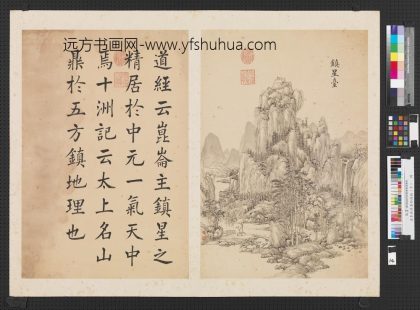 远方书画网-www.yfshuhua.com
鎮星臺
道經云崑崙主鎮星之
精居於中元一氣天中
焉十洲記云太上名山
鼎於五方鎮地理也